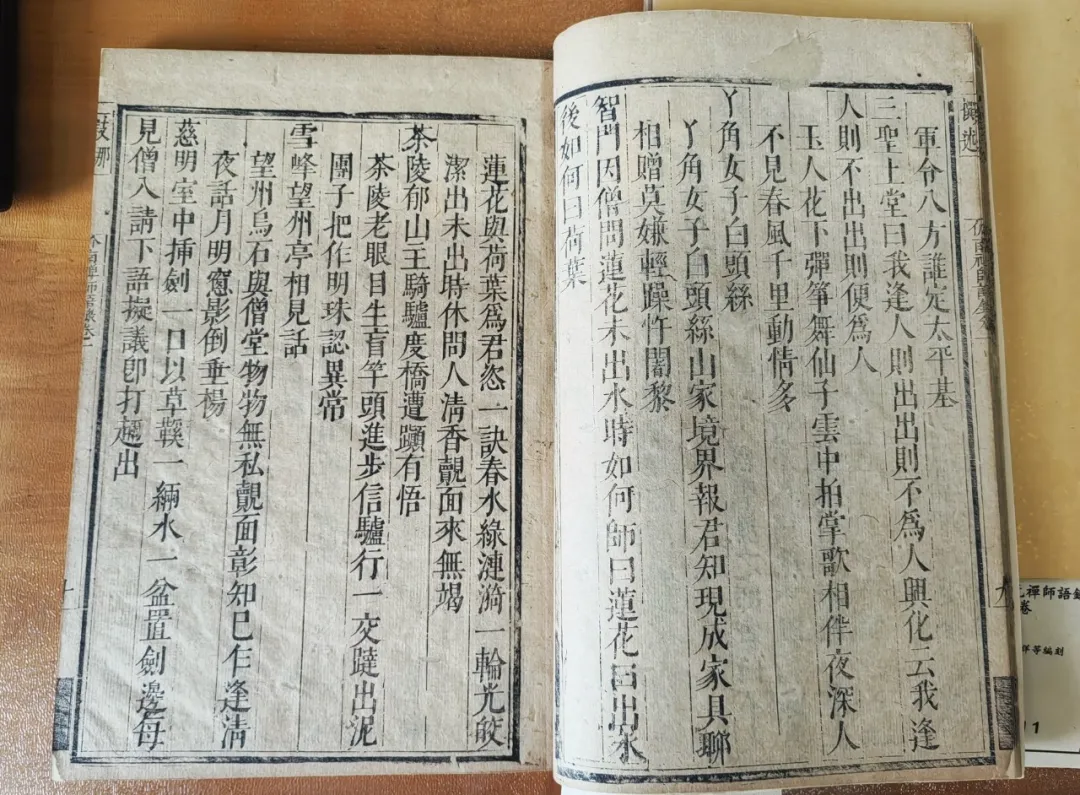 軍令八方誰定太平基
三聖上堂曰我逢人則出出則不爲人興化云我逢
人則不出出則便爲人
玉人花下彈箏舞仙子雲中拍掌歌相伴夜深人
不見春風千里動情多
丫角女子白頭絲
丫角女子白頭絲山家境界報君知現成家具聊
相贈莫嫌輕躁忤闍黎
智門因僧問蓮花未出水時如何師曰蓮花曰出水
後如何曰荷葉
蓮花與荷葉爲君悉一訣春水綠漣漪一輪光皎
潔出未出時休問人淸香覿面來無竭
茶陵郁山王騎驢度橋遭躓有悟
茶陵老眼目生盲竿頭進步信驢行一交躂出泥
團子把作明珠認異常
雪峰望州亭相見話
望州烏石與僧堂物物無私覿面彰知已乍逢淸
夜話月明窻影倒垂楊
慈明室中揷劍一口以草鞵一緉水一盆置劍邊每
見僧入請下語擬議卽打趂出
十
九
禪師語錄
卷
等編刻